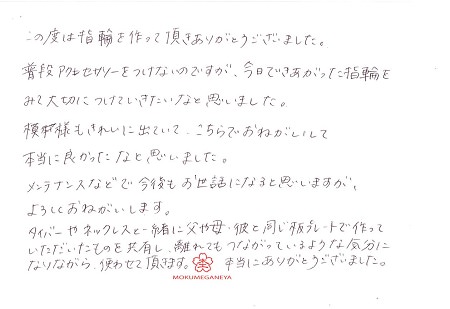 この度は指輪を作って頂きありがとうございました。
普段アクセサリーをつけないのですが、今日できあがった指輪を
みて大切につけていきたいなと思いました。
模様もきれいに出ていて、こちらでおねがいして
本当に良かったなと思いました。
メンテナンスなどで今後もお世話になると思いますが、
よろしくおねがいします。
タイバーやネックレスと一緒に父や母、彼と同じ板プレートで作って
いただいたものを共有し、離れてもつながっているような気分に
なりながら、使わせて頂きます。 本当にありがとうございました。
MOKUMEGANEYA